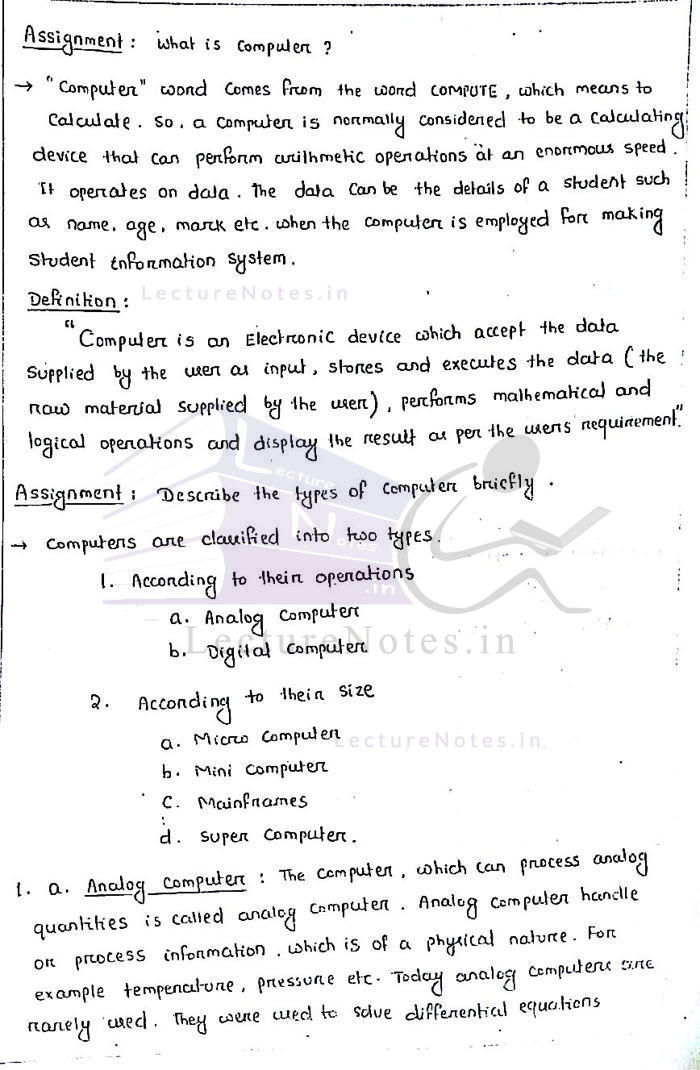 Assignment : What is Computer ?
→ "Computer" word comes from the word COMPUTE, which means to
Calculate. So, a computer is normally considered to be a calculating
device that can perform arithmetic operations at an enormous speed.
It operates on data. The data can be the details of a student such
as name, age, mark etc. when the computer is employed for making
Student information system.
LectureNotes.in
Definition :
"Computer is an Electronic device which accept the data
Supplied by the user as input, stores and executes the data (the
raw material supplied by the user), performs mathematical and
logical operations and display the result as per the users requirement."
Lecture
Notes
.in
Assignment : Describe the types of computer briefly.
→ Computers are classified into two types.
1. According to their operations
a. Analog Computer
b. Digital Computer
LectureNotes.in
2. According to their size
a. Micro Computer
LectureNotes.in
b. Mini Computer
C. Mainframes
d. Super Computer.
1. a. Analog Computer : The Computer, which can process analog
quantities is called analog computer. Analog computer handle
or process information, which is of a physical nature. For
example temperature, pressure etc. Today analog computers are
rarely used. They were used to solve differential equations